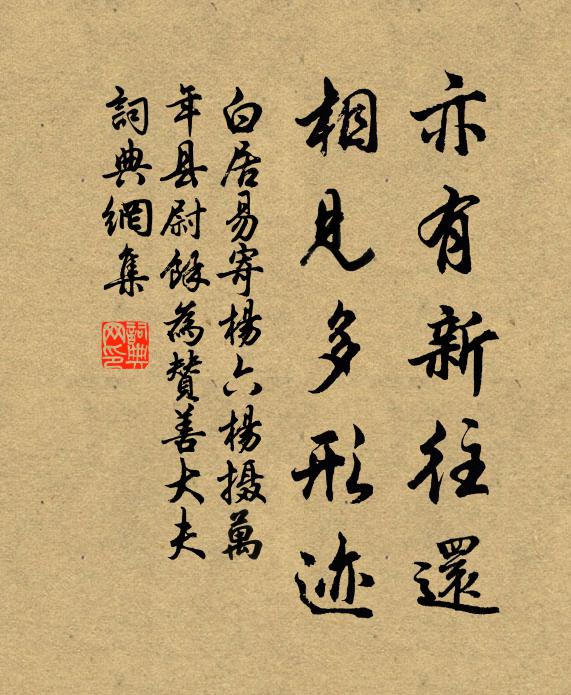 亦有新往還
相見多形迹
白居易寄楊六楊摄萬
年县尉餘為贊善大夫
詞典網集
詞典网印